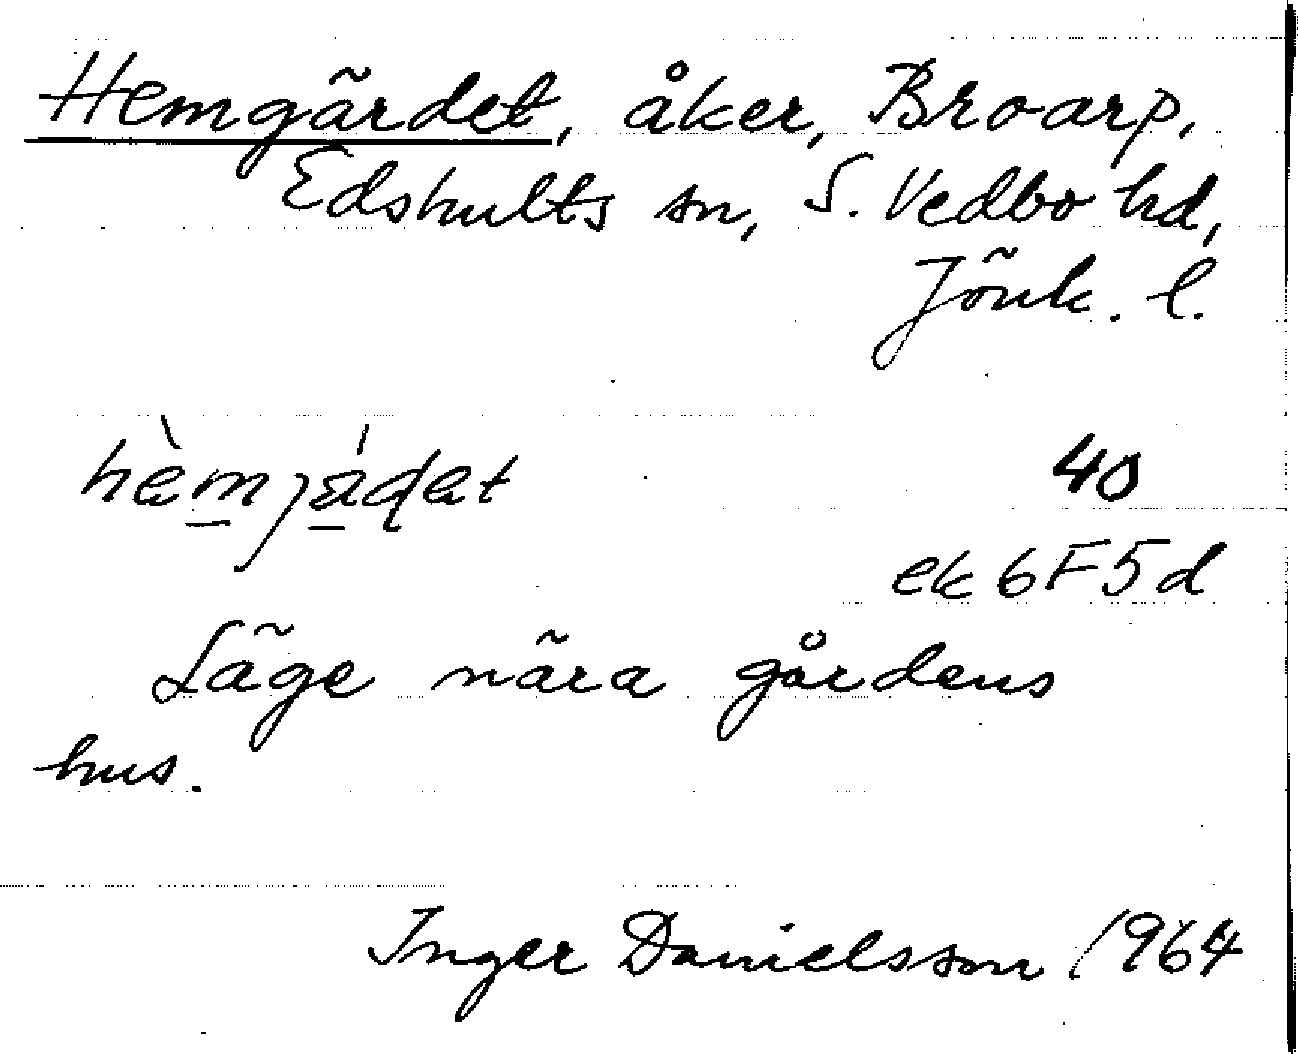 Hemgärdet, åker, Broarp,
Edshults sn, S. Vedbo hd,
Jönk. l.
hèmjáɖet 40
ek 6F5d
Läge nära gårdens
hus.
Inger Danielsson 1964